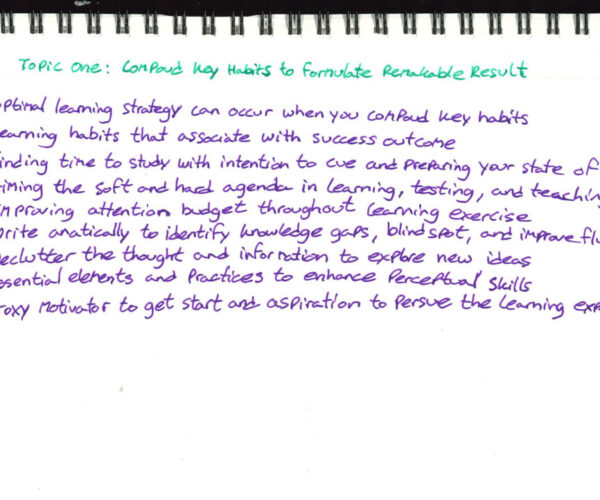 Topic One: Compoud Key Habits to Formulate Remakable Result
optimal learning strategy can occur when you compoud key habits
earning habits that associate with success outcome
inding time to study with intention to cue and preparing your state of
iming the soft and hard agenda in learning, testing, and teaching
improving attention budget throughout learning exercise
write anatically to identify knowledge gaps, blindspot, and improve flu
eclutter the thought and information to explore new ideas
essential elements and practices to enhance perceptual skills
roxy Motivator to get start and aspiration to persue the learning exp